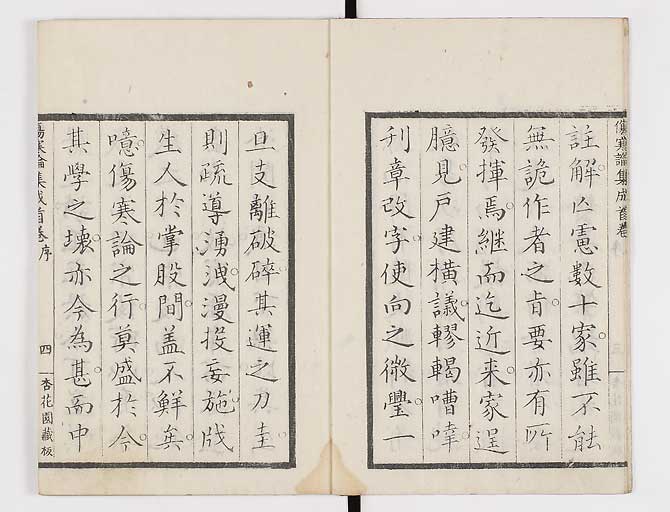 傷寒論集成 首卷
註解亾慮數十家雖不能
無詭作者之旨要亦有所
發揮焉継而迄近来家逞
臆見戸建橫議轇轕嘈嘩
刊章改字使向之微璺一
旦支離破碎其運之刀圭
則疏導湧洩漫投妄施戕
生人於掌股間盖不鮮矣
噫傷寒論之行莫盛於今
其學之壊亦今為甚而中
傷寒論集成首卷 序 四 杏花園藏板